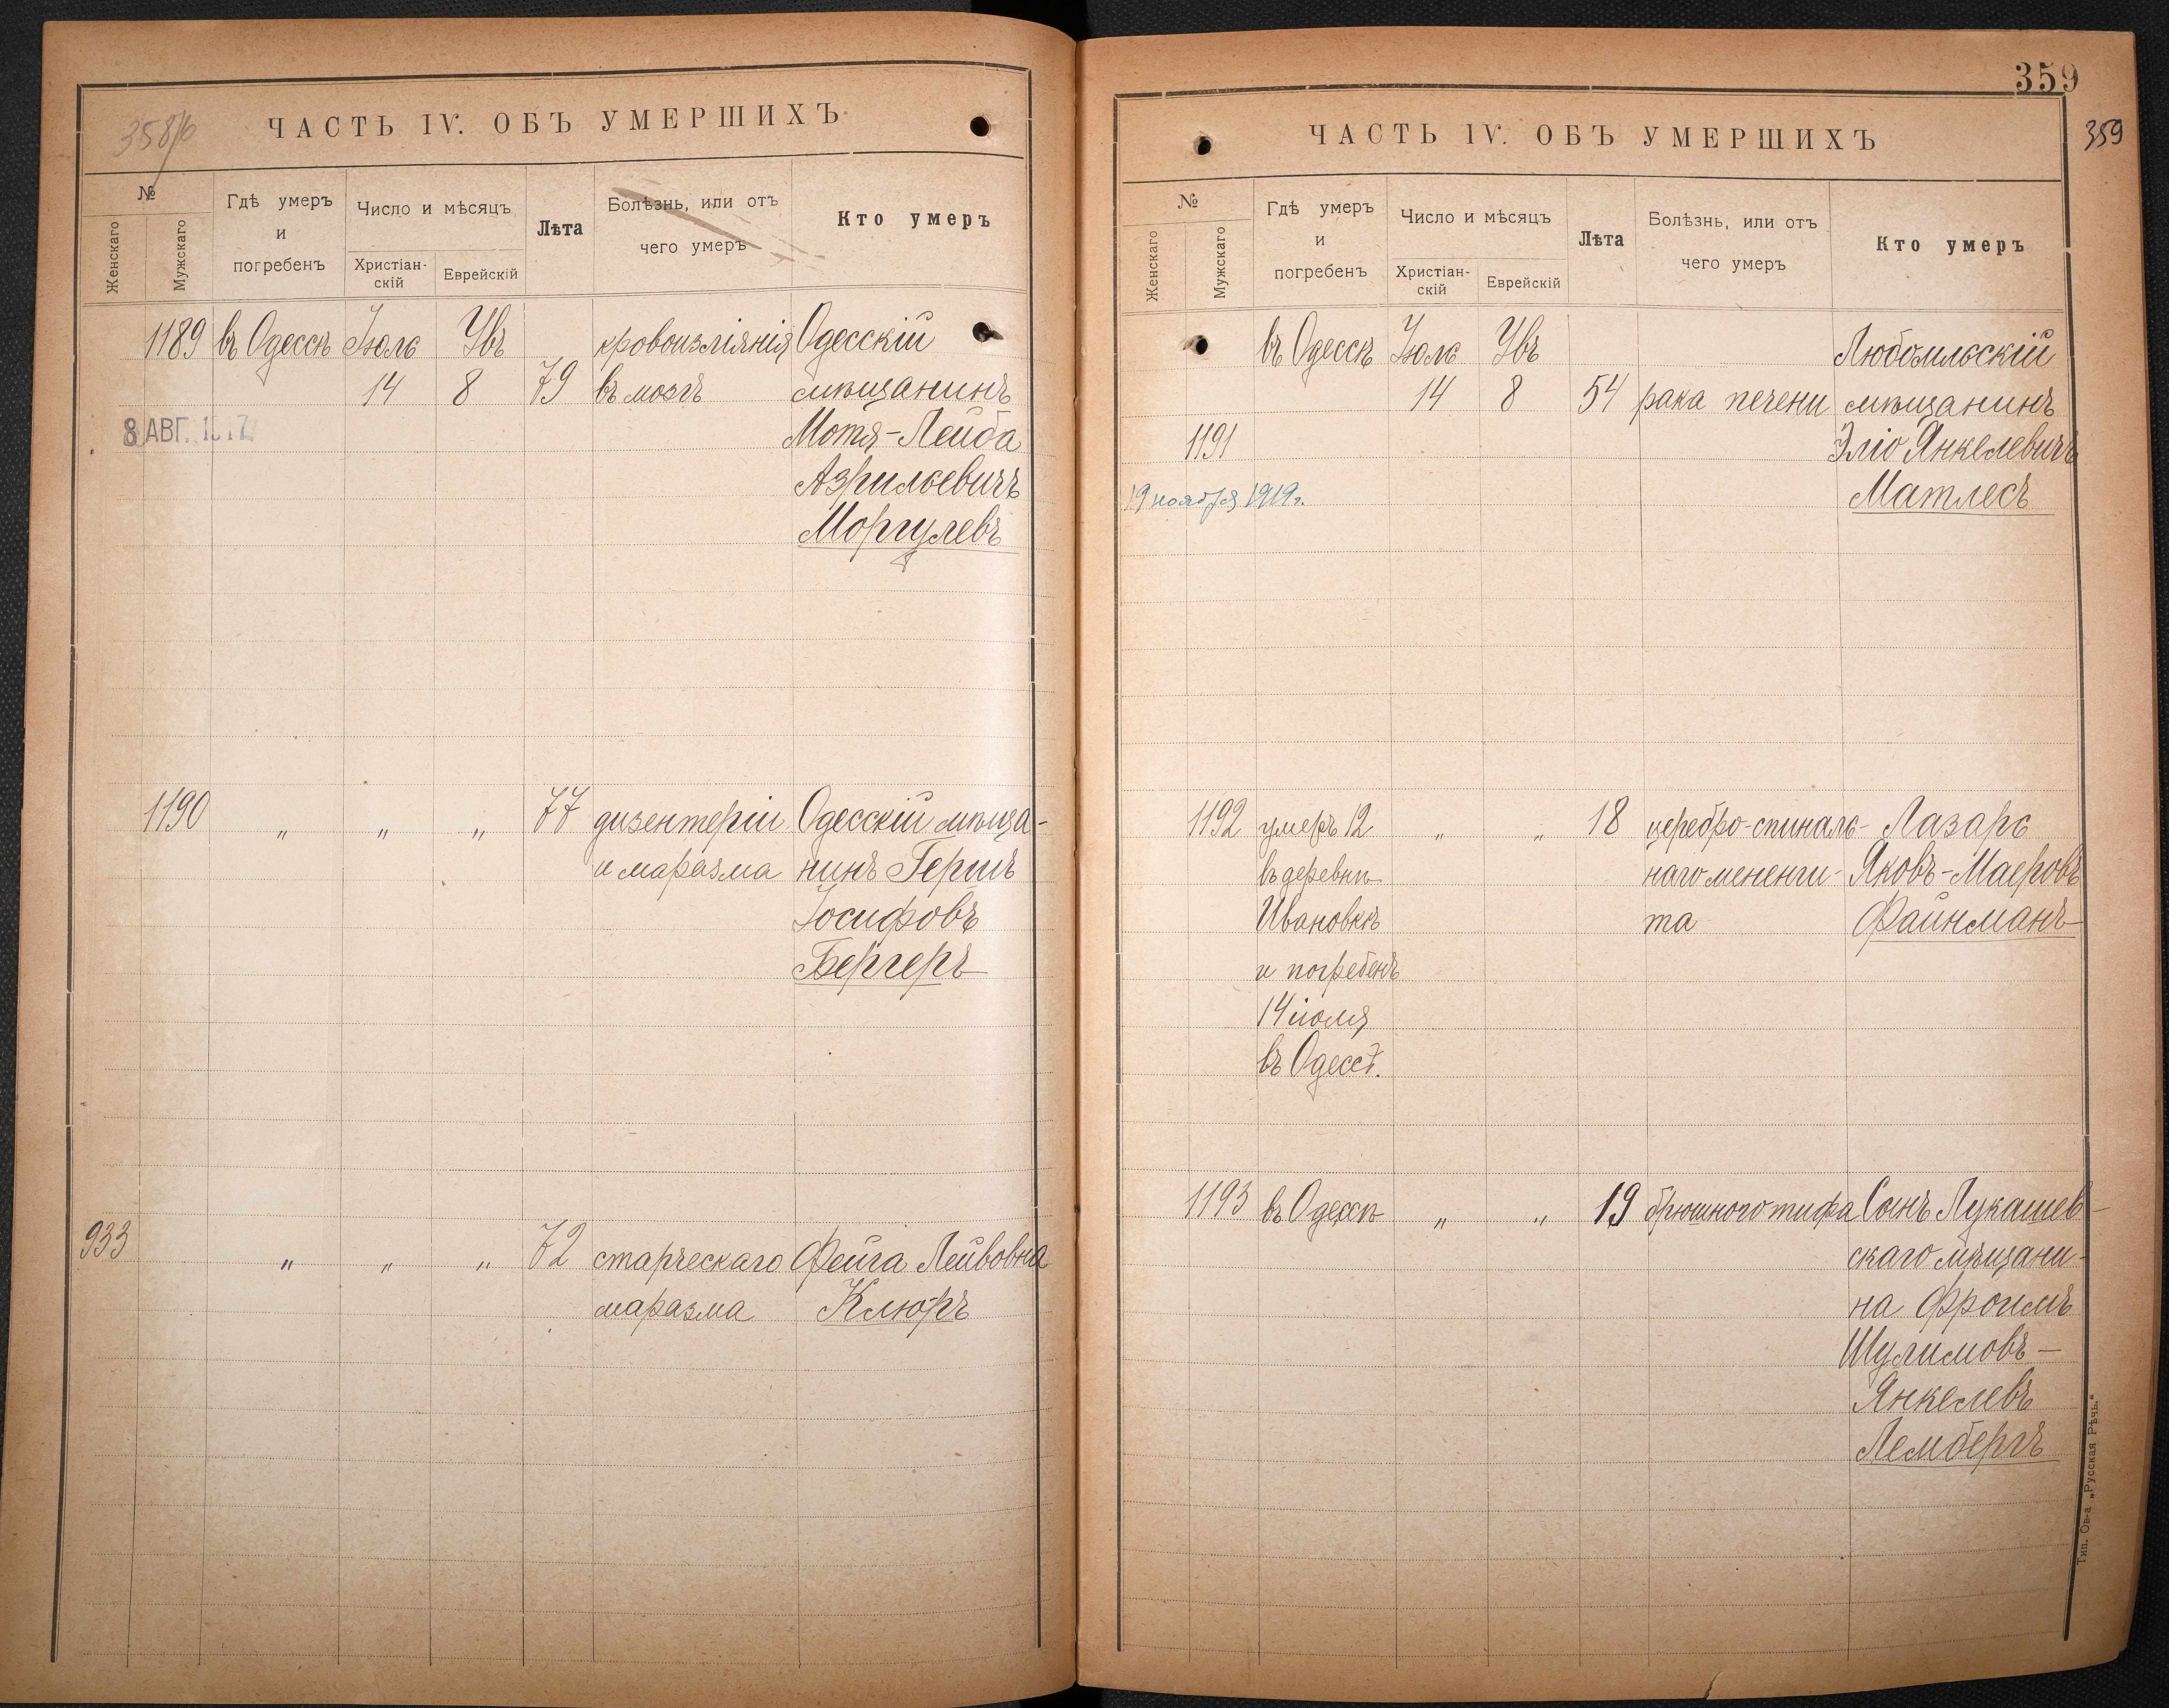 358/б
ЧАСТЬ IV. ОБЪ УМЕРШИХЪ
№
Женскаго
Мужскаго
Гдѣ умеръ
и
погребенъ
Число и мѣсяцъ
Христіан-
скій
Еврейскій
Лѣта
Болѣзнь, или отъ
чего умеръ
Кто умеръ
1189 въ Одессѣ Іюль Увъ кровоизліянія Одесскій
14 8 79 въ мозгъ мѣщанинъ
8 АВГ. 1917 Мотя-Лейба
Азрильевичъ
Моргулевъ
1190 „ „ „ 77 дизентеріи Одесскій мѣща-
и маразма нинъ Гершъ
Іосифовъ
Бергеръ
933 „ „ „ 72 старческаго Фейга Лейвовна
маразма Клюръ
359
359
ЧАСТЬ IV. ОБЪ УМЕРШИХЪ
№
Женскаго
Мужскаго
Гдѣ умеръ
и
погребенъ
Число и мѣсяцъ
Христіан-
скій
Еврейскій
Лѣта
Болѣзнь, или отъ
чего умеръ
Кто умеръ
въ Одессѣ Іюль Увъ Любомльскій
14 8 54 рака печени мѣщанинъ
1191 Эліо Янкелевичъ
19 ноября 1919 г. Матлесъ
1192 умеръ 12 „ „ 18 церебро-спиналь- Лазарь
въ деревнѣ наго мененги- Яковъ-Маеровъ
Ивановкѣ та Файнманъ
и погребенъ
14 іюля
въ Одессѣ.
1193 въ Одессѣ „ „ 19 брюшного тифа Сынъ Лукашев-
скаго мѣщани-
на Фроимъ
Шулимовъ-
Янкелевъ
Лембергъ
Тип. Ов-а „Русская Рѣчь.“